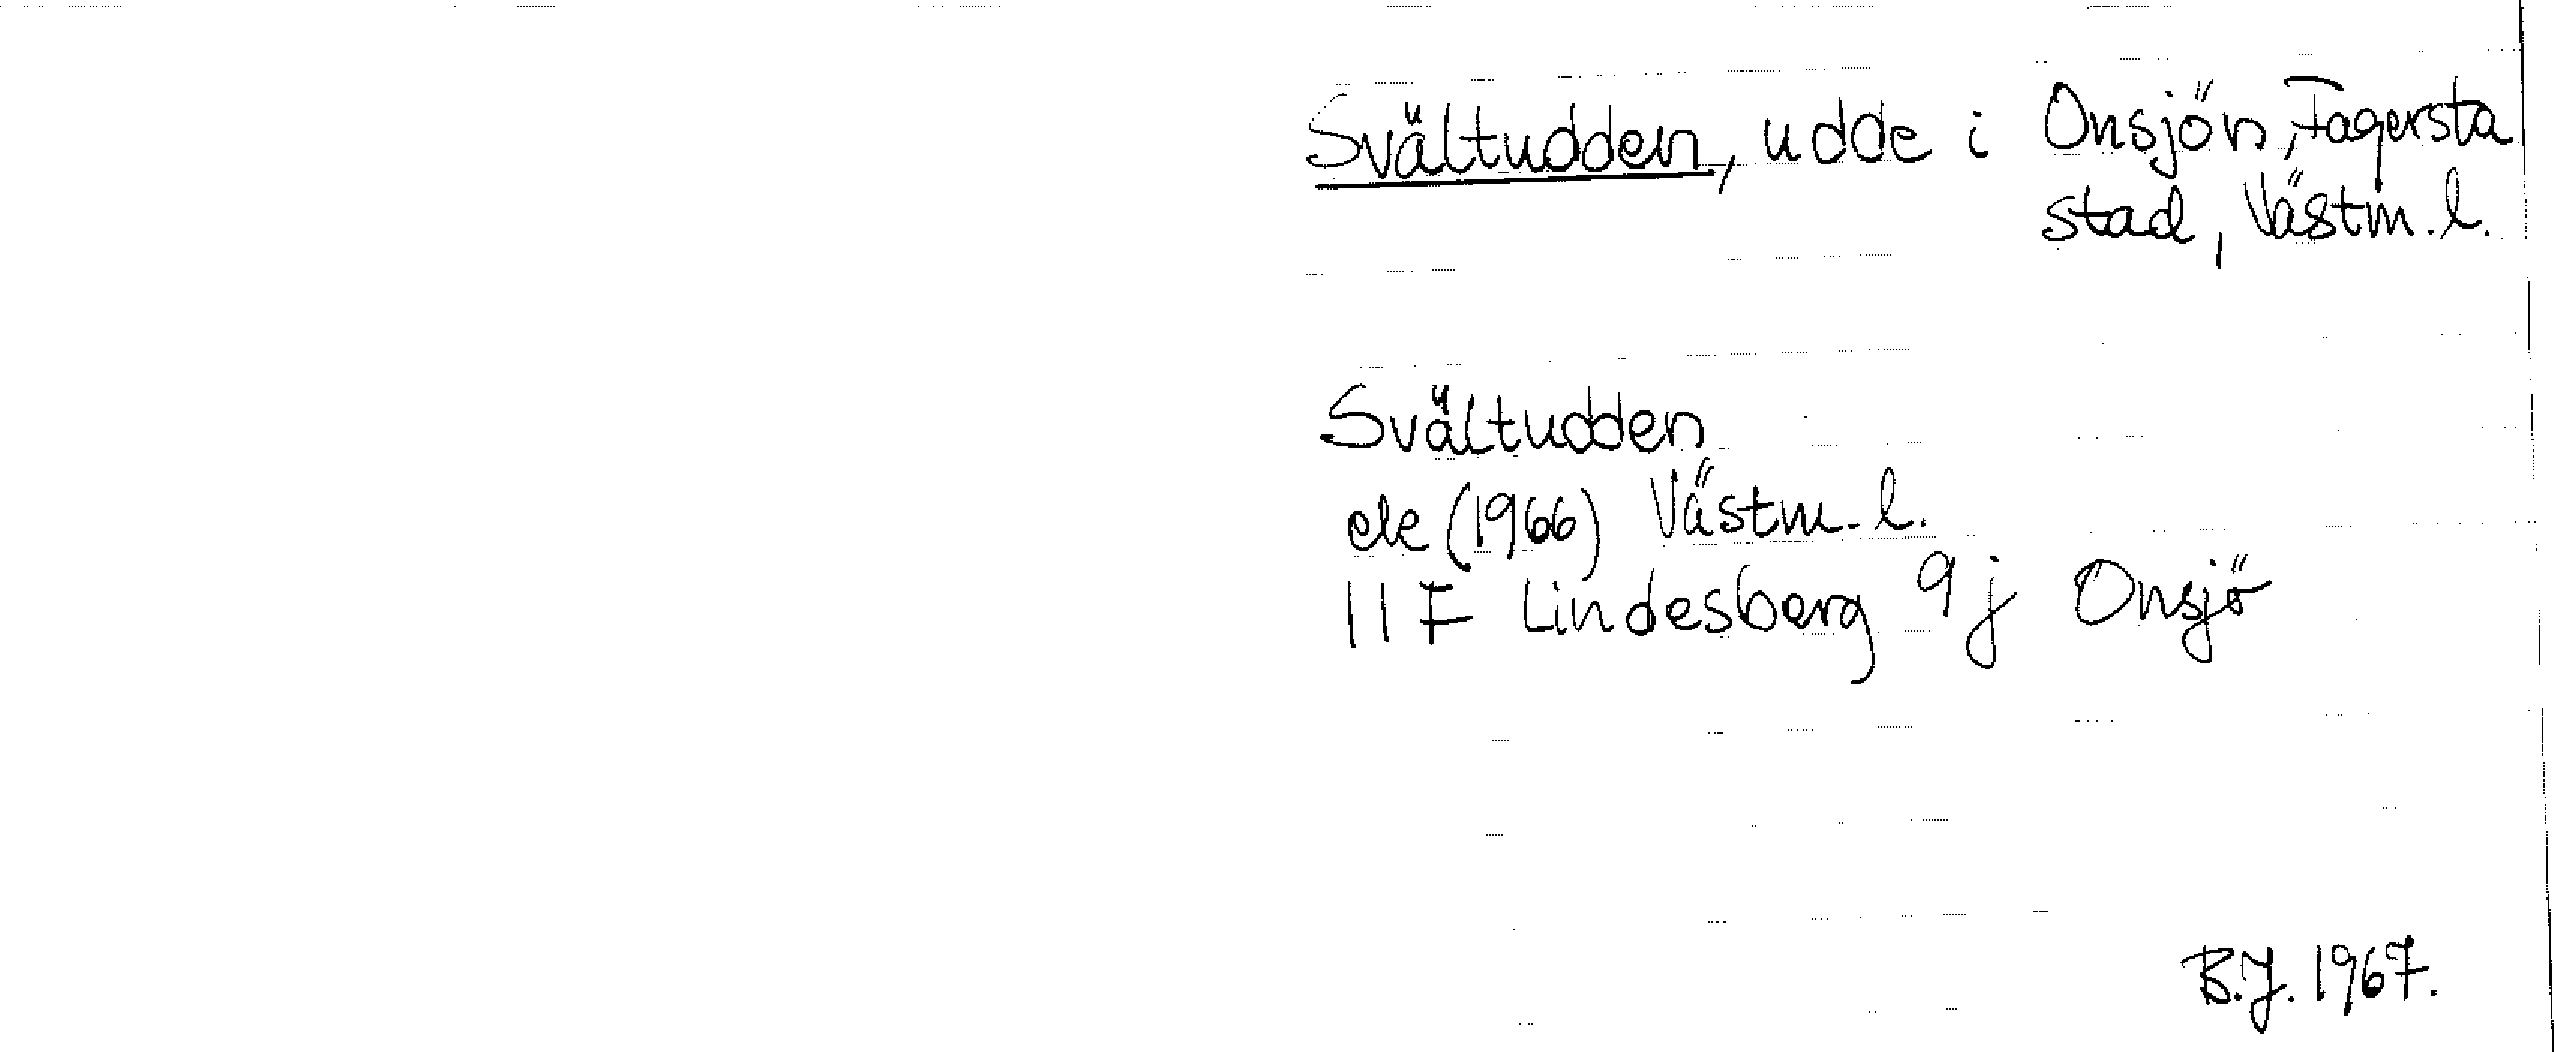 Svältudden, udde i Onsjön, Fagersta
stad, Västm. l.
Svältudden
ek (1966) Västm. l.
11 F Lindesberg 9 j Onsjö
B.J. 1967.